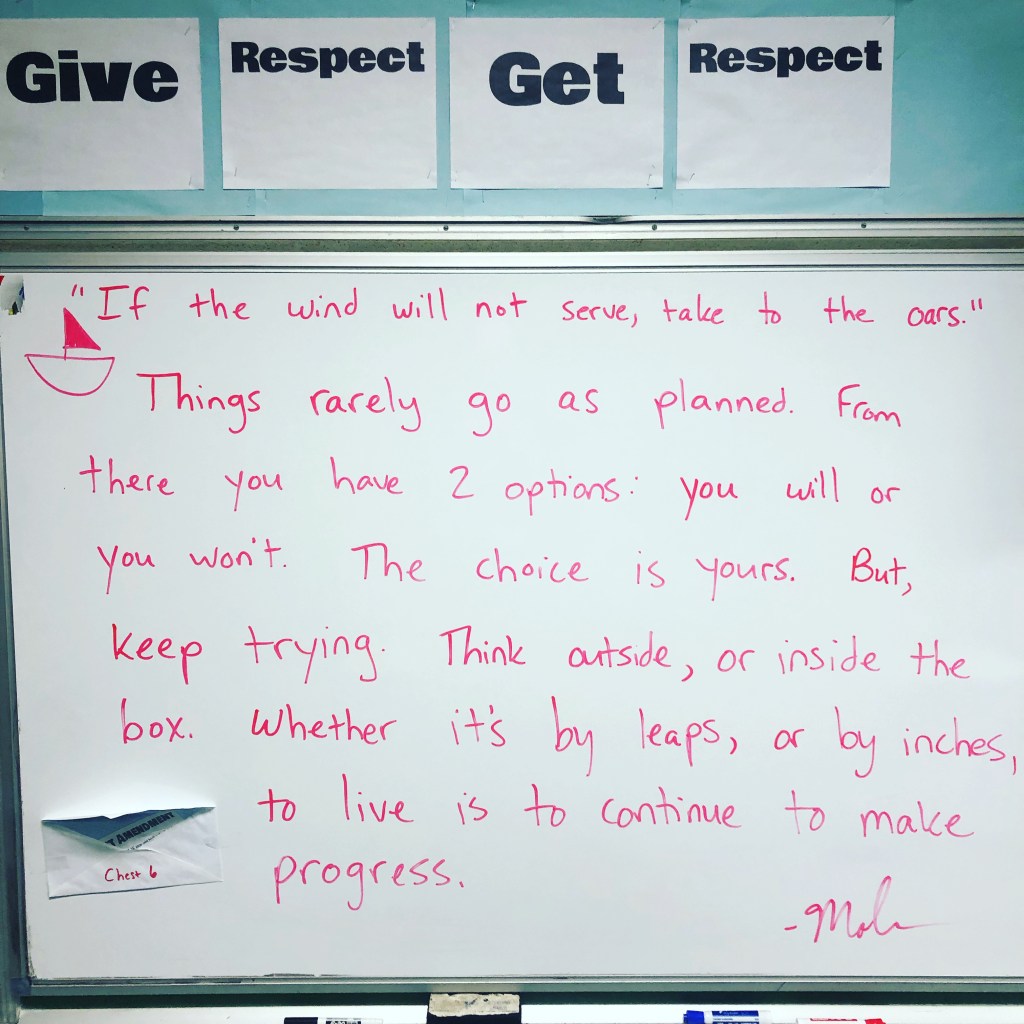 Give Respect Get Respect
"If the wind will not serve, take to the oars."
Things rarely go as planned. From
there you have 2 options: you will or
you won't. The choice is yours. But,
keep trying. Think outside, or inside the
box. Whether it's by leaps, or by inches,
to live is to continue to make
progress.
AMENDMENT
Chest 6